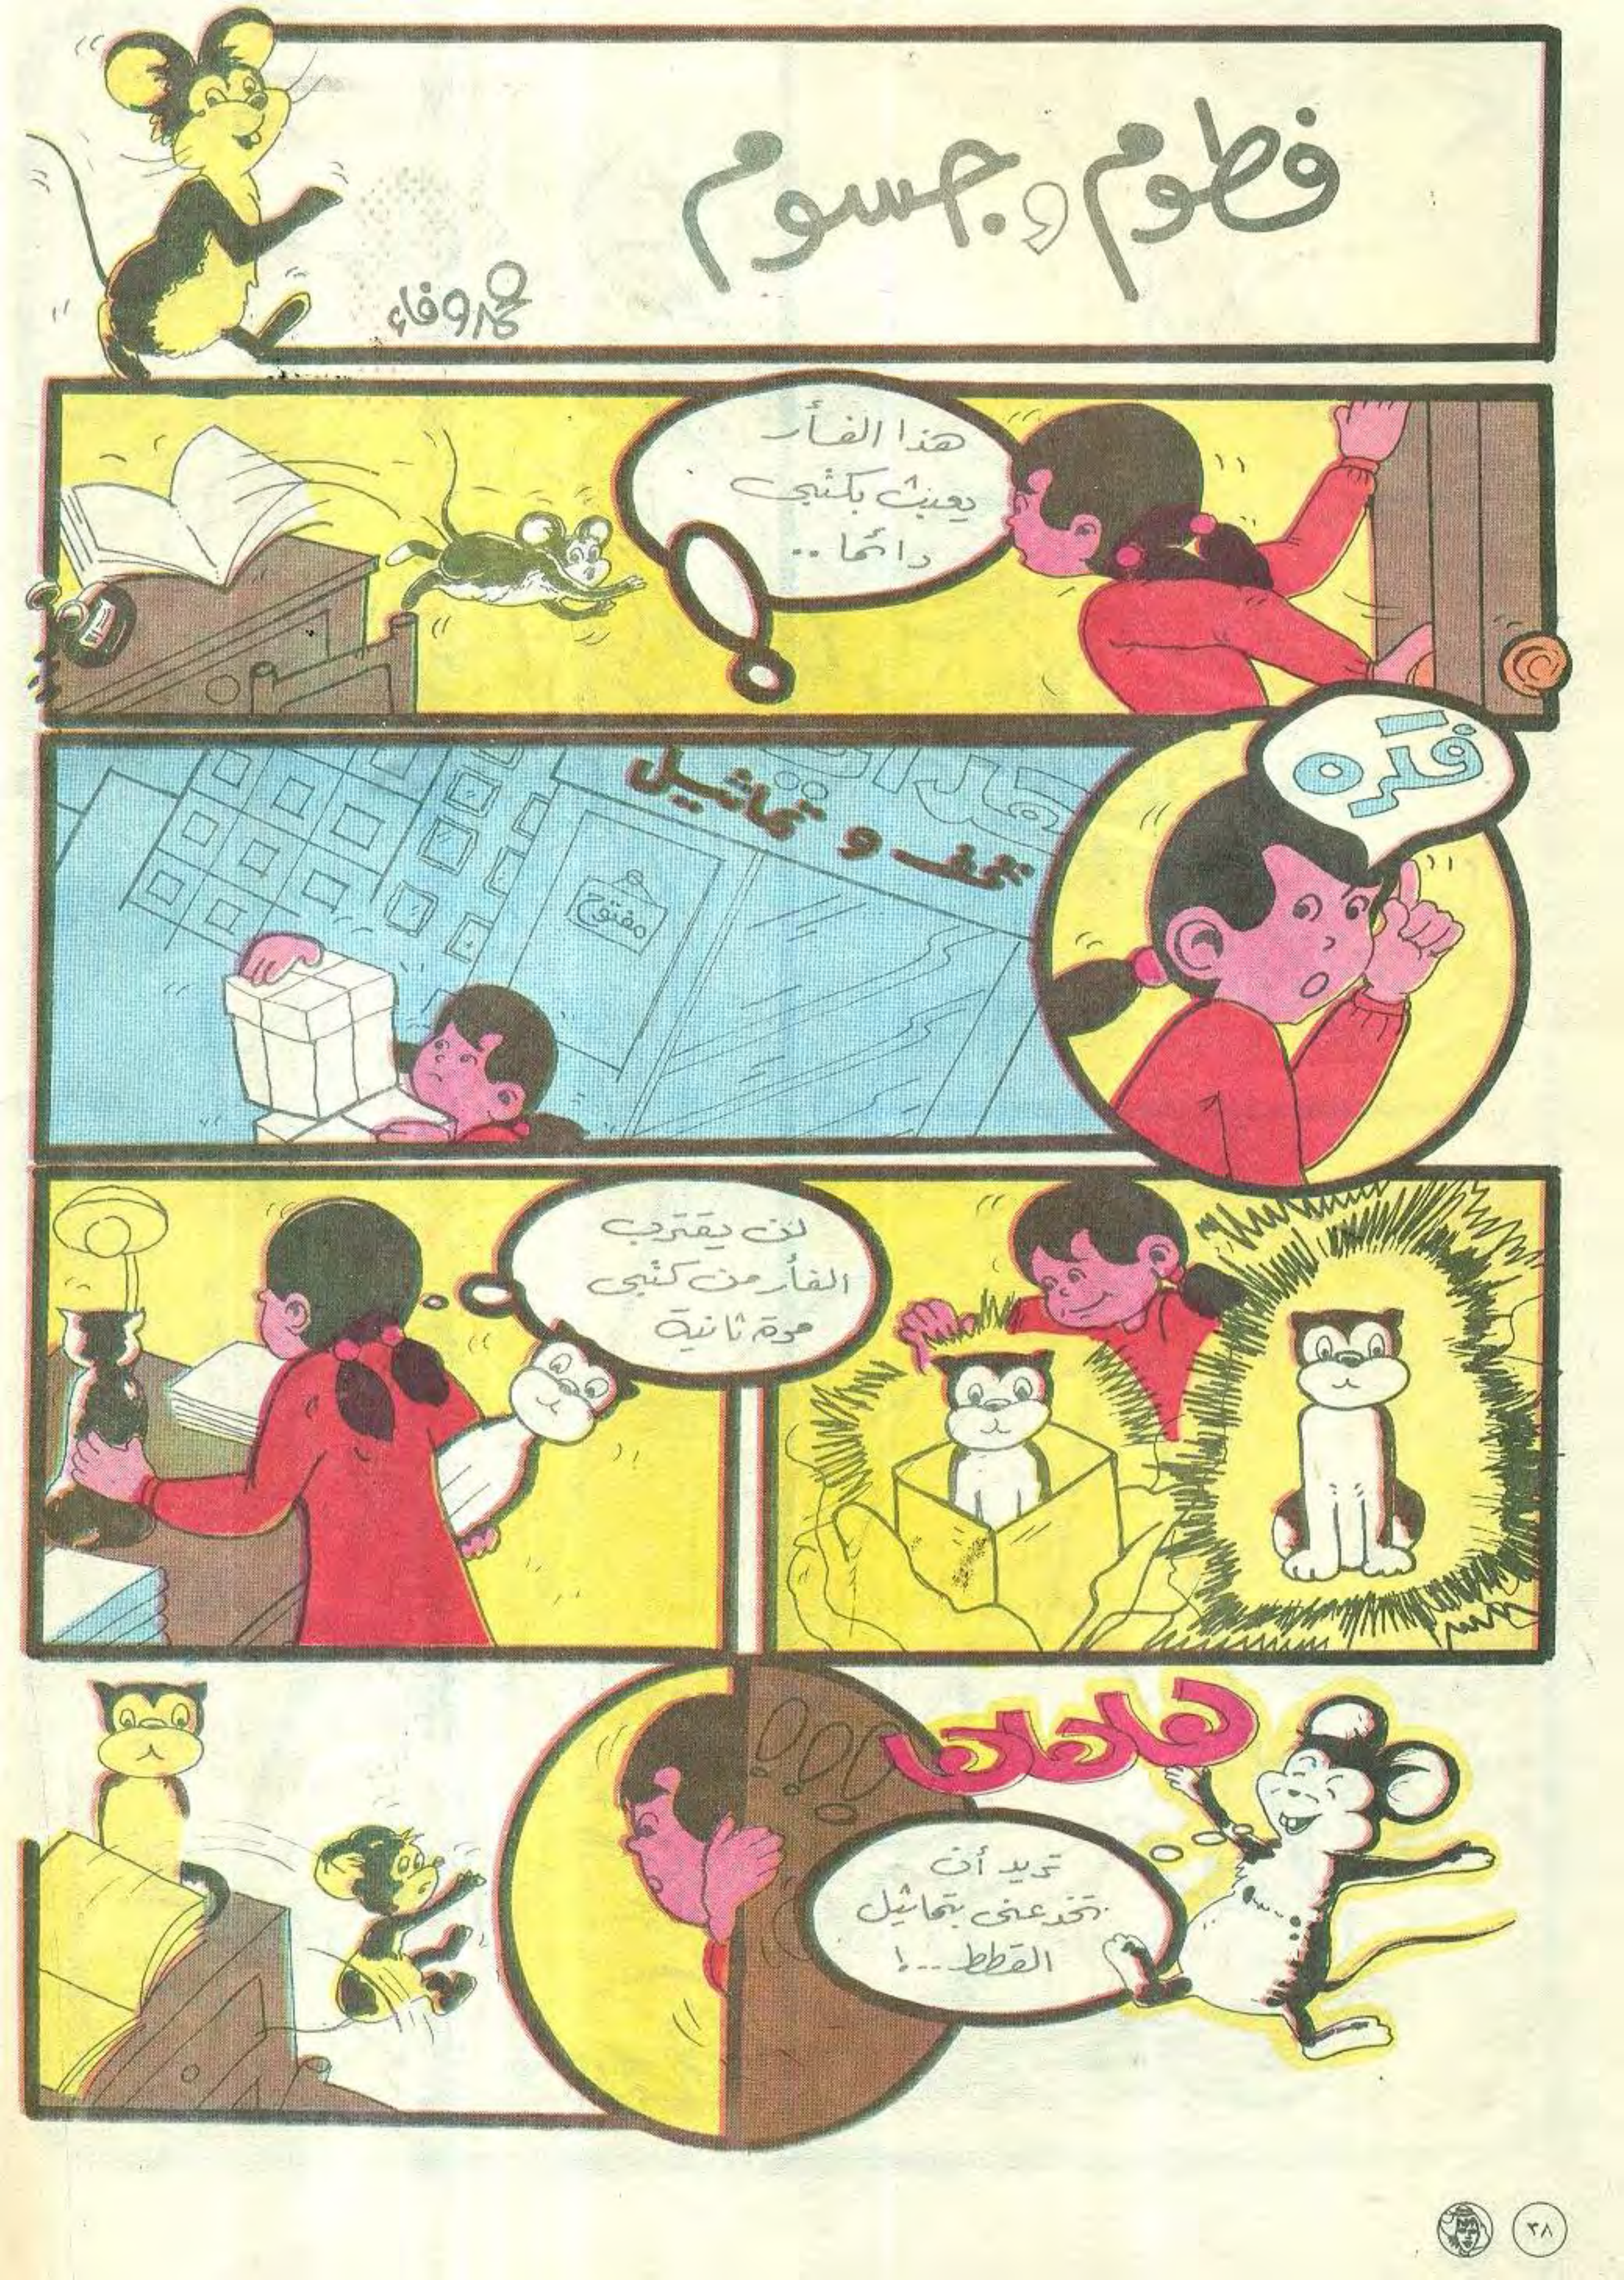 فطوم وجسوم
محمد وفاء
هذا الفأر
يعبث بكتبي
دائما..
فكرة
هدايا
تحف و تماثيل
مفتوح
لن يقترب
الفأر من كتبي
مرة ثانية
هاهاها
تريد أن
تخدعني بتماثيل
القطط..!
٣٨